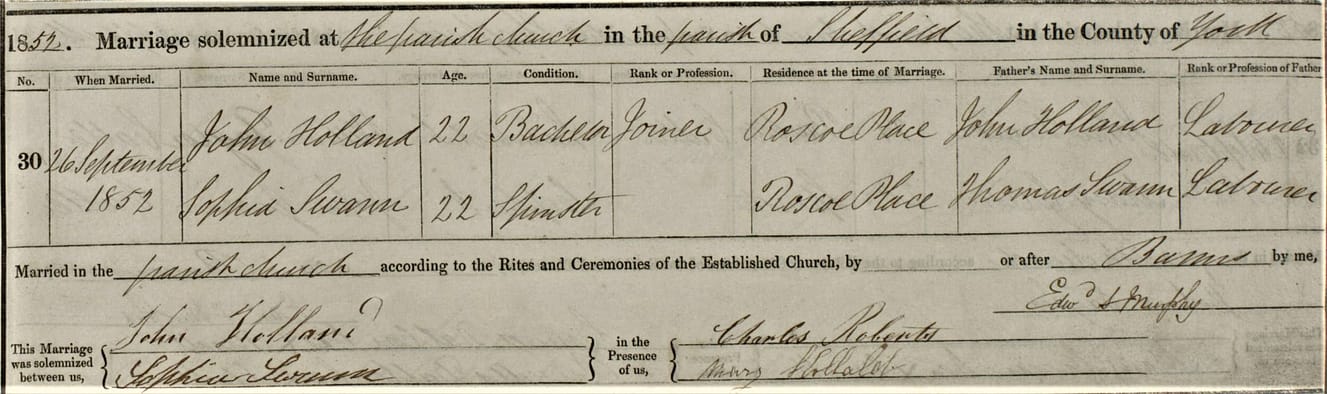 1852. Marriage solemnized at the parish church in the parish of Sheffield in the County of York
No. When Married. Name and Surname. Age. Condition. Rank or Profession. Residence at the time of Marriage. Father's Name and Surname. Rank or Profession of Father
John Holland 22 Bachelor Joiner Roscoe Place John Holland Labourer
30 26 September
1852 Sophia Swann 22 Spinster Roscoe Place Thomas Swann Labourer
Married in the parish church according to the Rites and Ceremonies of the Established Church, by or after Banns by me,
Edwd S Murphy
This Marriage was solemnized between us, John Holland in the Presence of us, Charles Roberts
Sophia Swann Mary